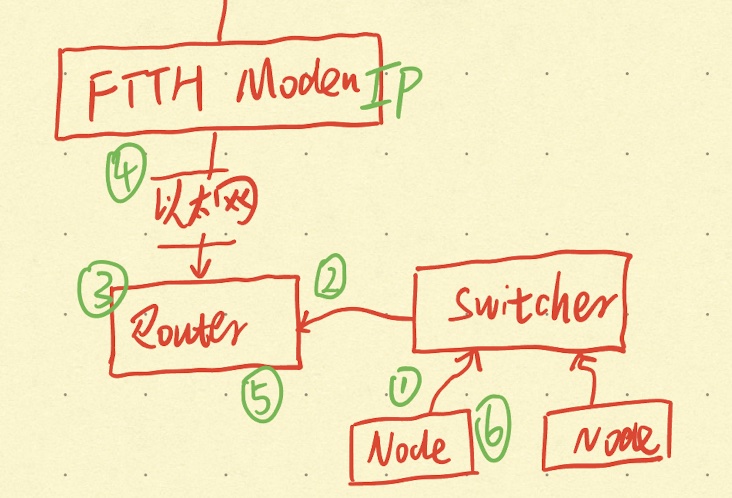 FTTH Moden IP
④
以太网
③
Router
②
Switcher
⑤
①
Node
⑥
Node